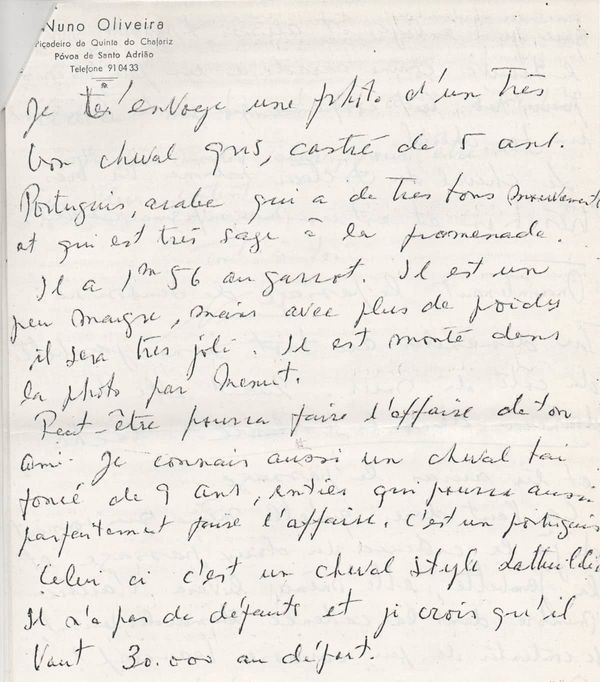 Nuno Oliveira
Piçadeiro da Quinta do Chafariz
Póvoa de Santo Adrião
Telefone 910433
Je t'envoye une photo d'un très
bon cheval gris, castré de 5 ans.
Portuguis, arabe qui a de tres bons mouvements
et qui est très sage à la promenade.
Il a 1m56 au garrot. Il est un
peu maigre, mais avec plus de poids
il sera tres joli. Il est monté dans
la photo par
Peut-être pourra faire l'affaire de ton
ami. Je connais aussi un cheval bai
foncé de 9 ans, entier qui pourra aussi
parfaitement faire l'affaire. C'est un portuguis
Celui ci c'est un cheval style
Il n'a pas de defauts et je crois qu'il
Vaut 30.000 au départ.